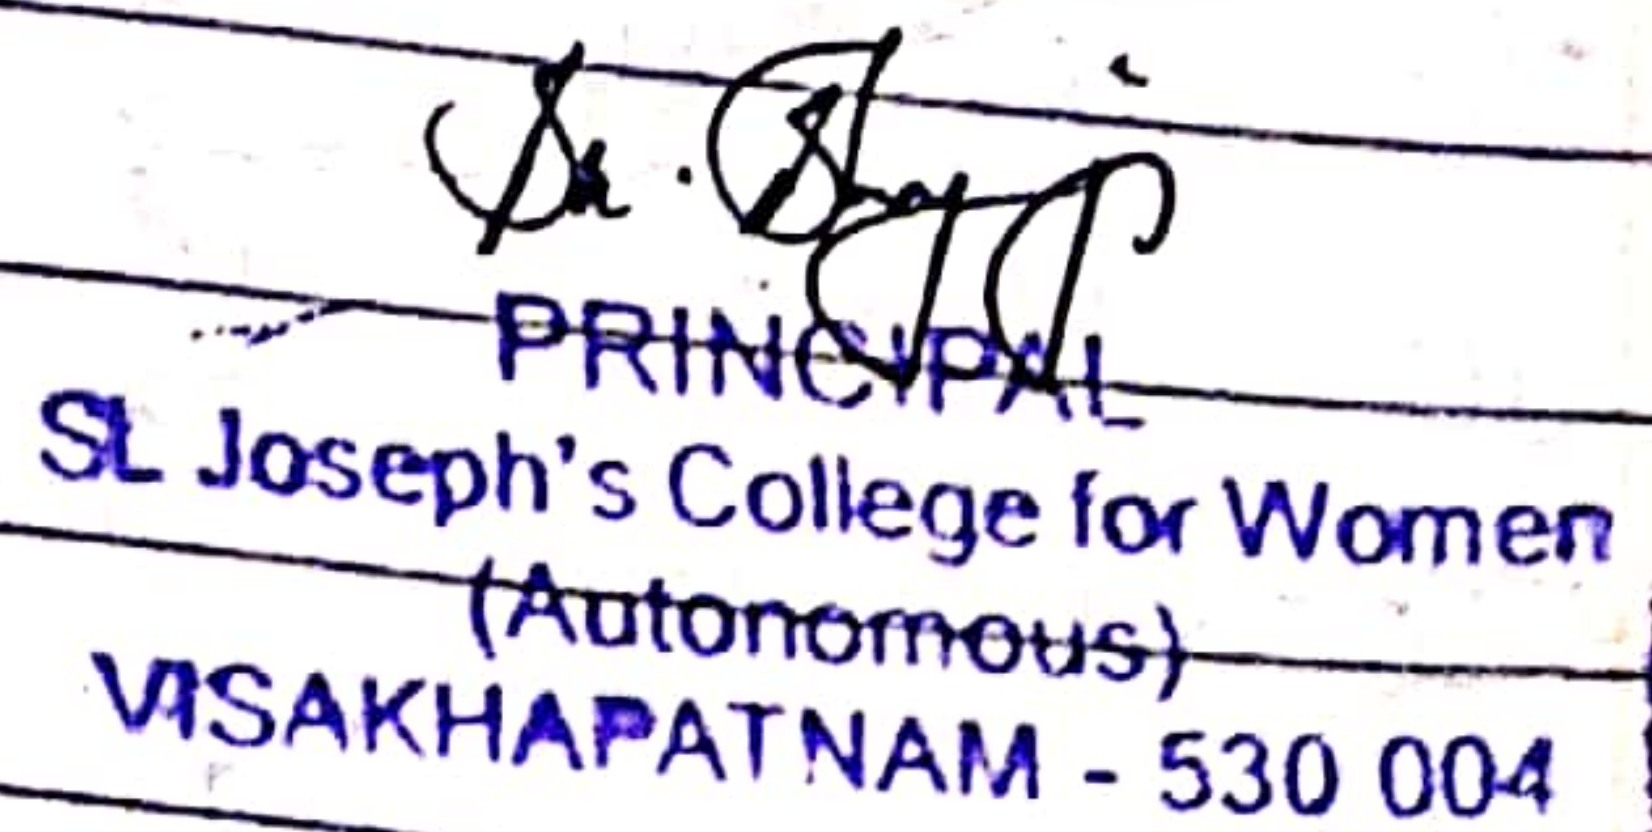 Sr.
PRINCIPAL
St. Joseph's College for Women
(Autonomous)
VISAKHAPATNAM - 530 004